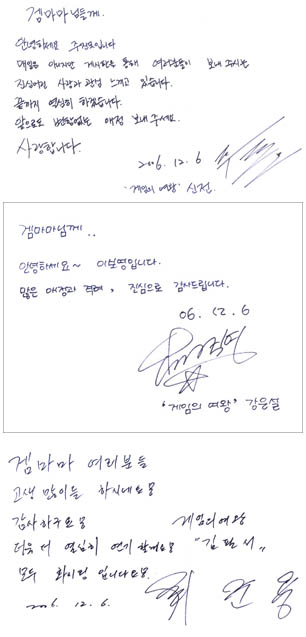 겜마마님들께.
안녕하세요 주진모입니다
매일은 아니지만 게시판을 통해 여러분들이 보내 주시는
진심어린 사랑과 관심 느끼고 있습니다.
끝까지 열심히 하겠습니다.
앞으로도 변함없는 애정 보내 주세요.
사랑합니다.
2006. 12. 6
'게임의 여왕' 신전.
겜마마님께..
안녕하세요~ 이보영입니다.
많은 애정과 격려, 진심으로 감사드립니다.
06. 12. 6
'게임의 여왕' 강은설
겜마마 여러분들
고생 많이들 하시네요
감사하구요
게임의여왕
더욱 더 열심히 연기 할게요
"김판석"
모두 화이팅 입니다요.
2006. 12. 6.